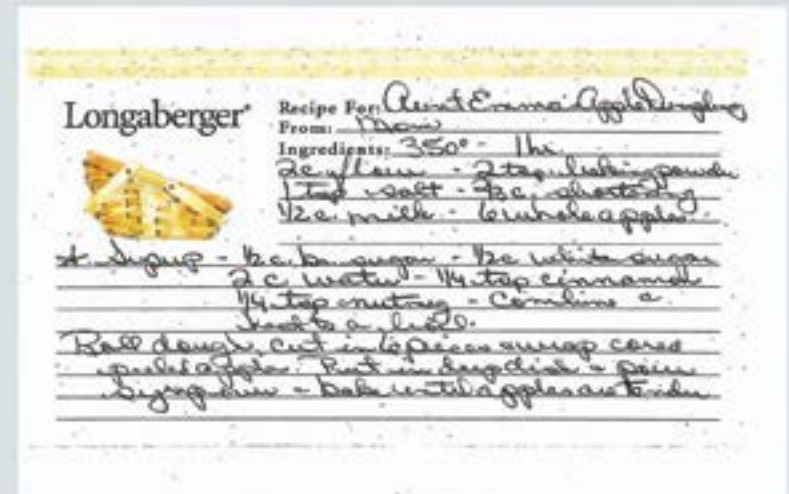 Longaberger®
Recipe For: Aunt Emma Apple Dumpling
From: Mom
Ingredients: 350° - 1 hr.
2 c flour - 2 tsp. baking powder
1 tsp salt - c. shortening
1/2 c. milk - 6 whole apples
Syrup - 1/2 c. br. sugar - 1/2 c white sugar
2 c water - 1/4 tsp cinnamon
1/4 tsp nutmeg - Combine &
heat to a boil.
Roll dough, cut in 6 pieces & wrap cored
peeled apples. Put in deep dish & pour
Syrup over - bake until apples are tender